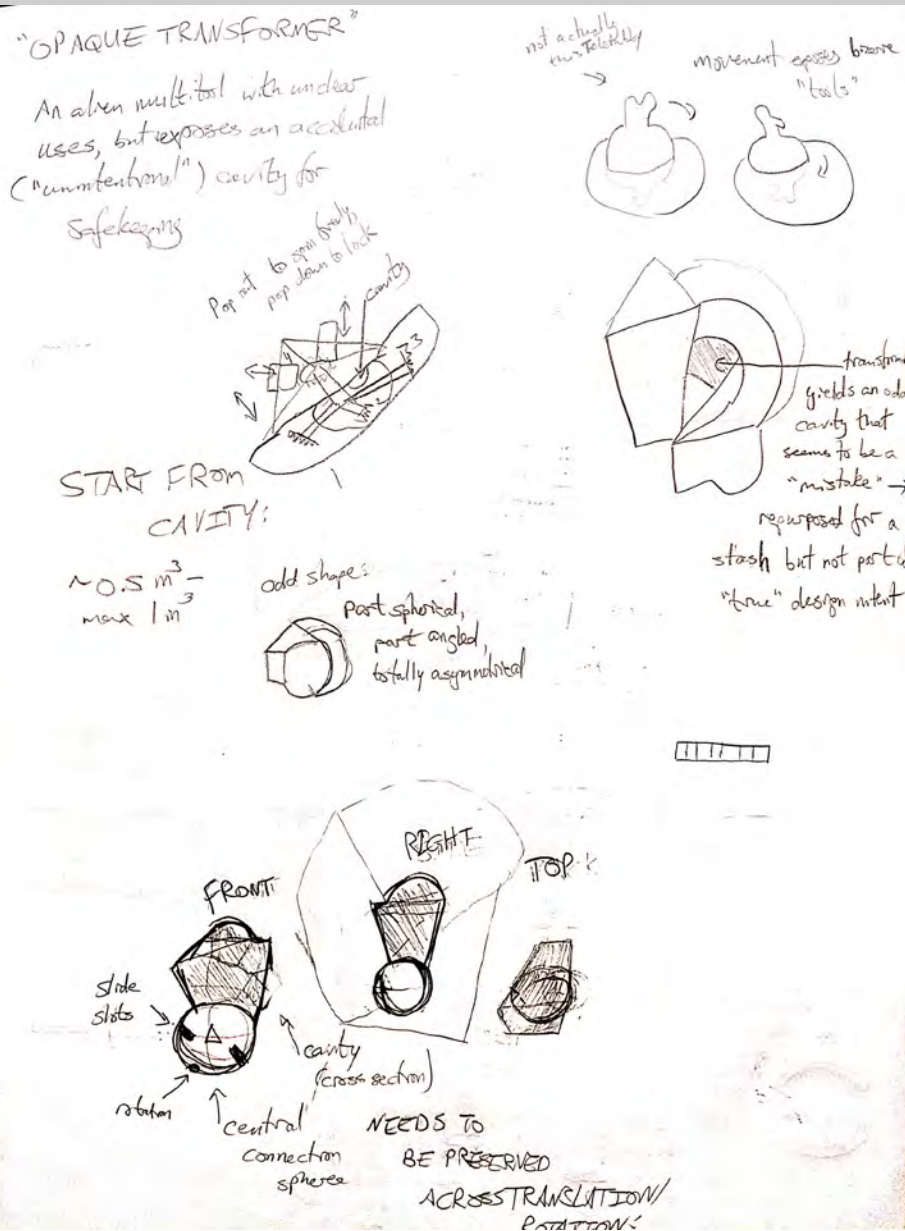 "OPAQUE TRANSFORMER"
An alien multitool with unclear
uses, but exposes an accidental
("unintentional") cavity for
safekeeping
not actually
this
movement exposes bizarre
"tools"
Pop out to spin freely,
pop down to lock
cavity
transform
yields an odd
cavity that
seems to be a
"mistake" →
repurposed for a
stash but not part
"true" design intent
START FROM
CAVITY:
~0.5 m³ –
max 1 m³
odd shape:
part spherical,
part angled,
totally asymmetrical
FRONT
RIGHT
TOP
slide
slots
rotation
central
connection
spheres
cavity
(cross section)
NEEDS TO
BE PRESERVED
ACROSS TRANSLATION/
ROTATION: